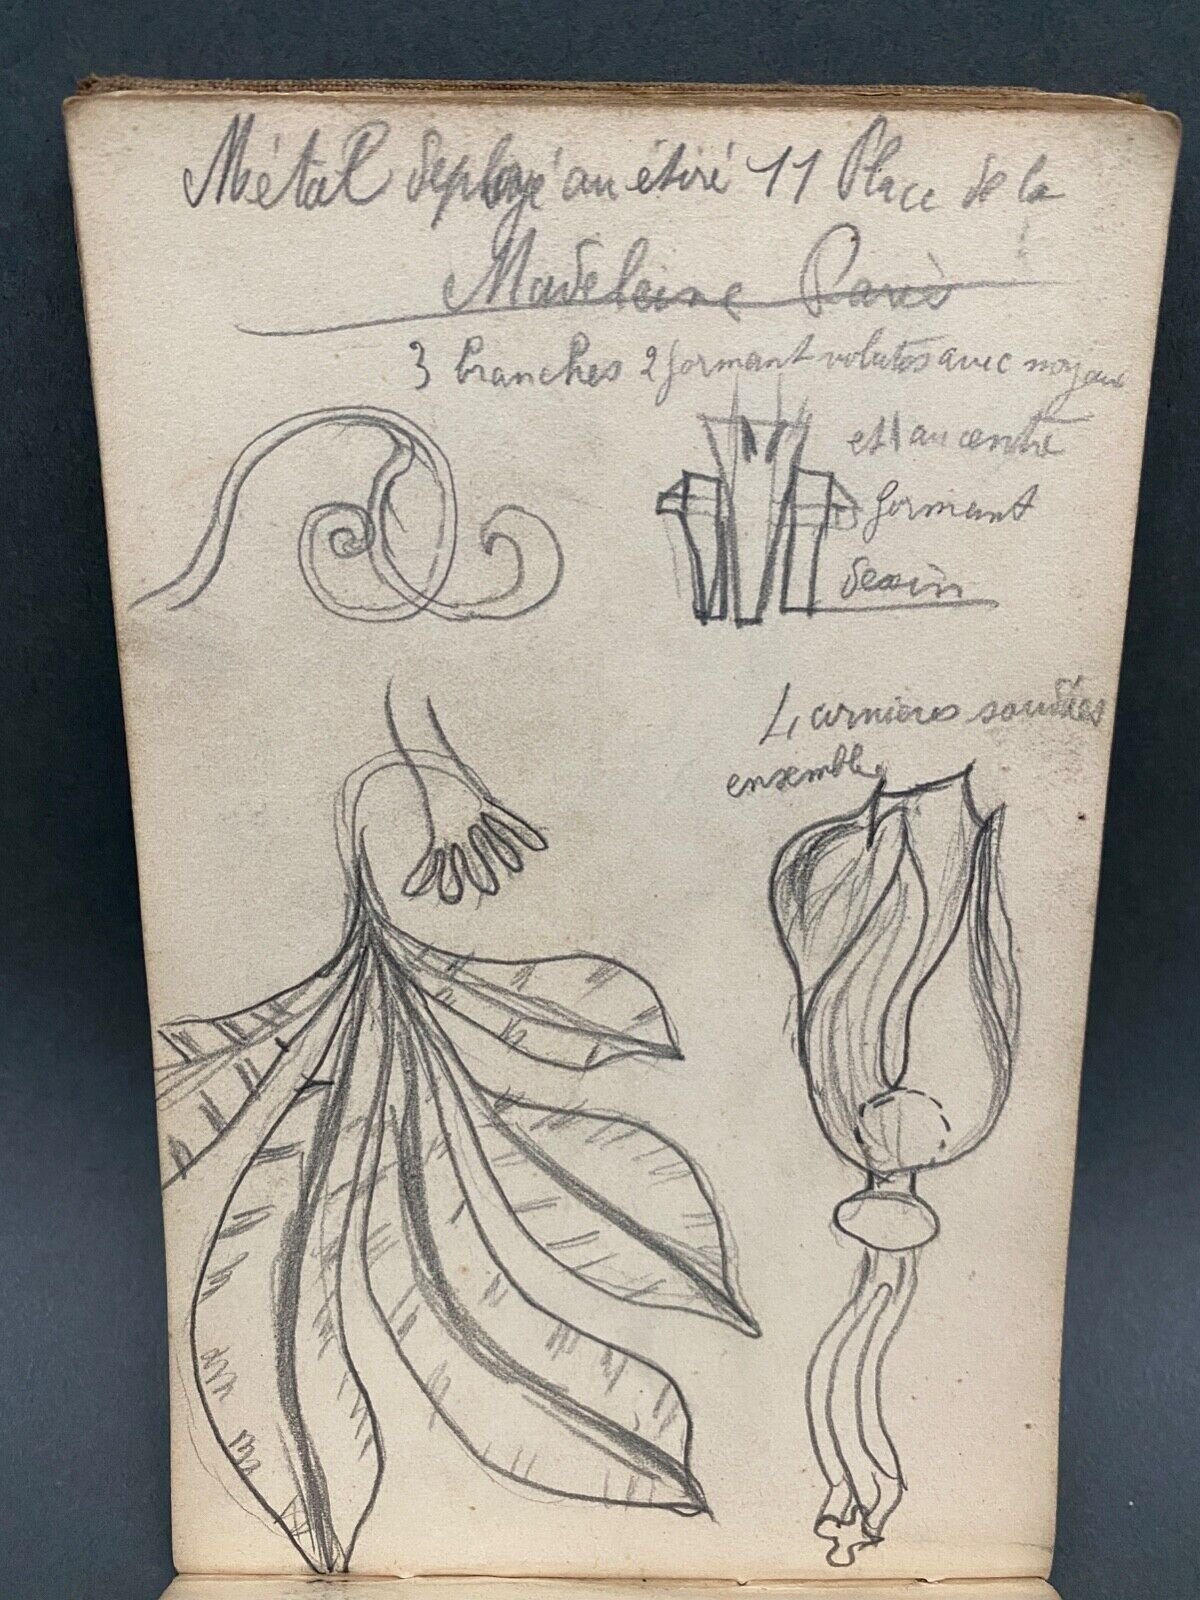 Métal deployé au étiré 11 Place de la
Madeleine Paris
3 branches 2 formant volutes avec noyau
et 1 au centre
formant
dessin
4 cornieres soudées
ensemble